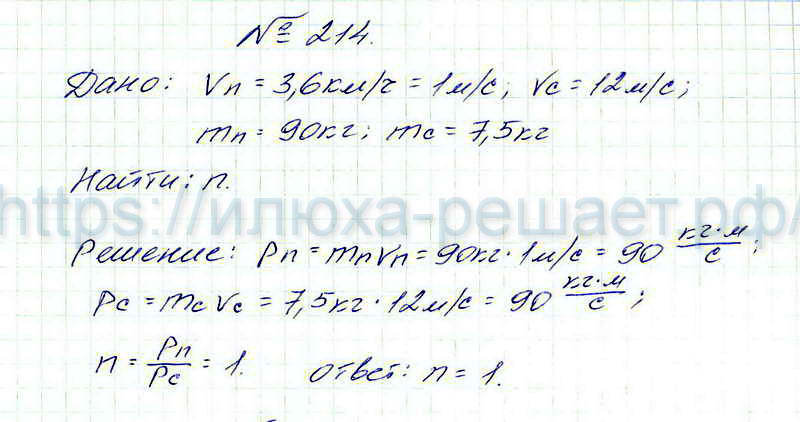 № 214.
Дано: Vп = 3,6 км/ч = 1 м/с; Vс = 12 м/с;
mп = 90 кг; mс = 7,5 кг
Найти: n.
https://илюха-решает.рф/
Решение: Pп = mпVп = 90 кг · 1 м/с = 90 кг·м/с;
Pс = mсVс = 7,5 кг · 12 м/с = 90 кг·м/с;
n = Pп/Pс = 1. Ответ: n = 1.